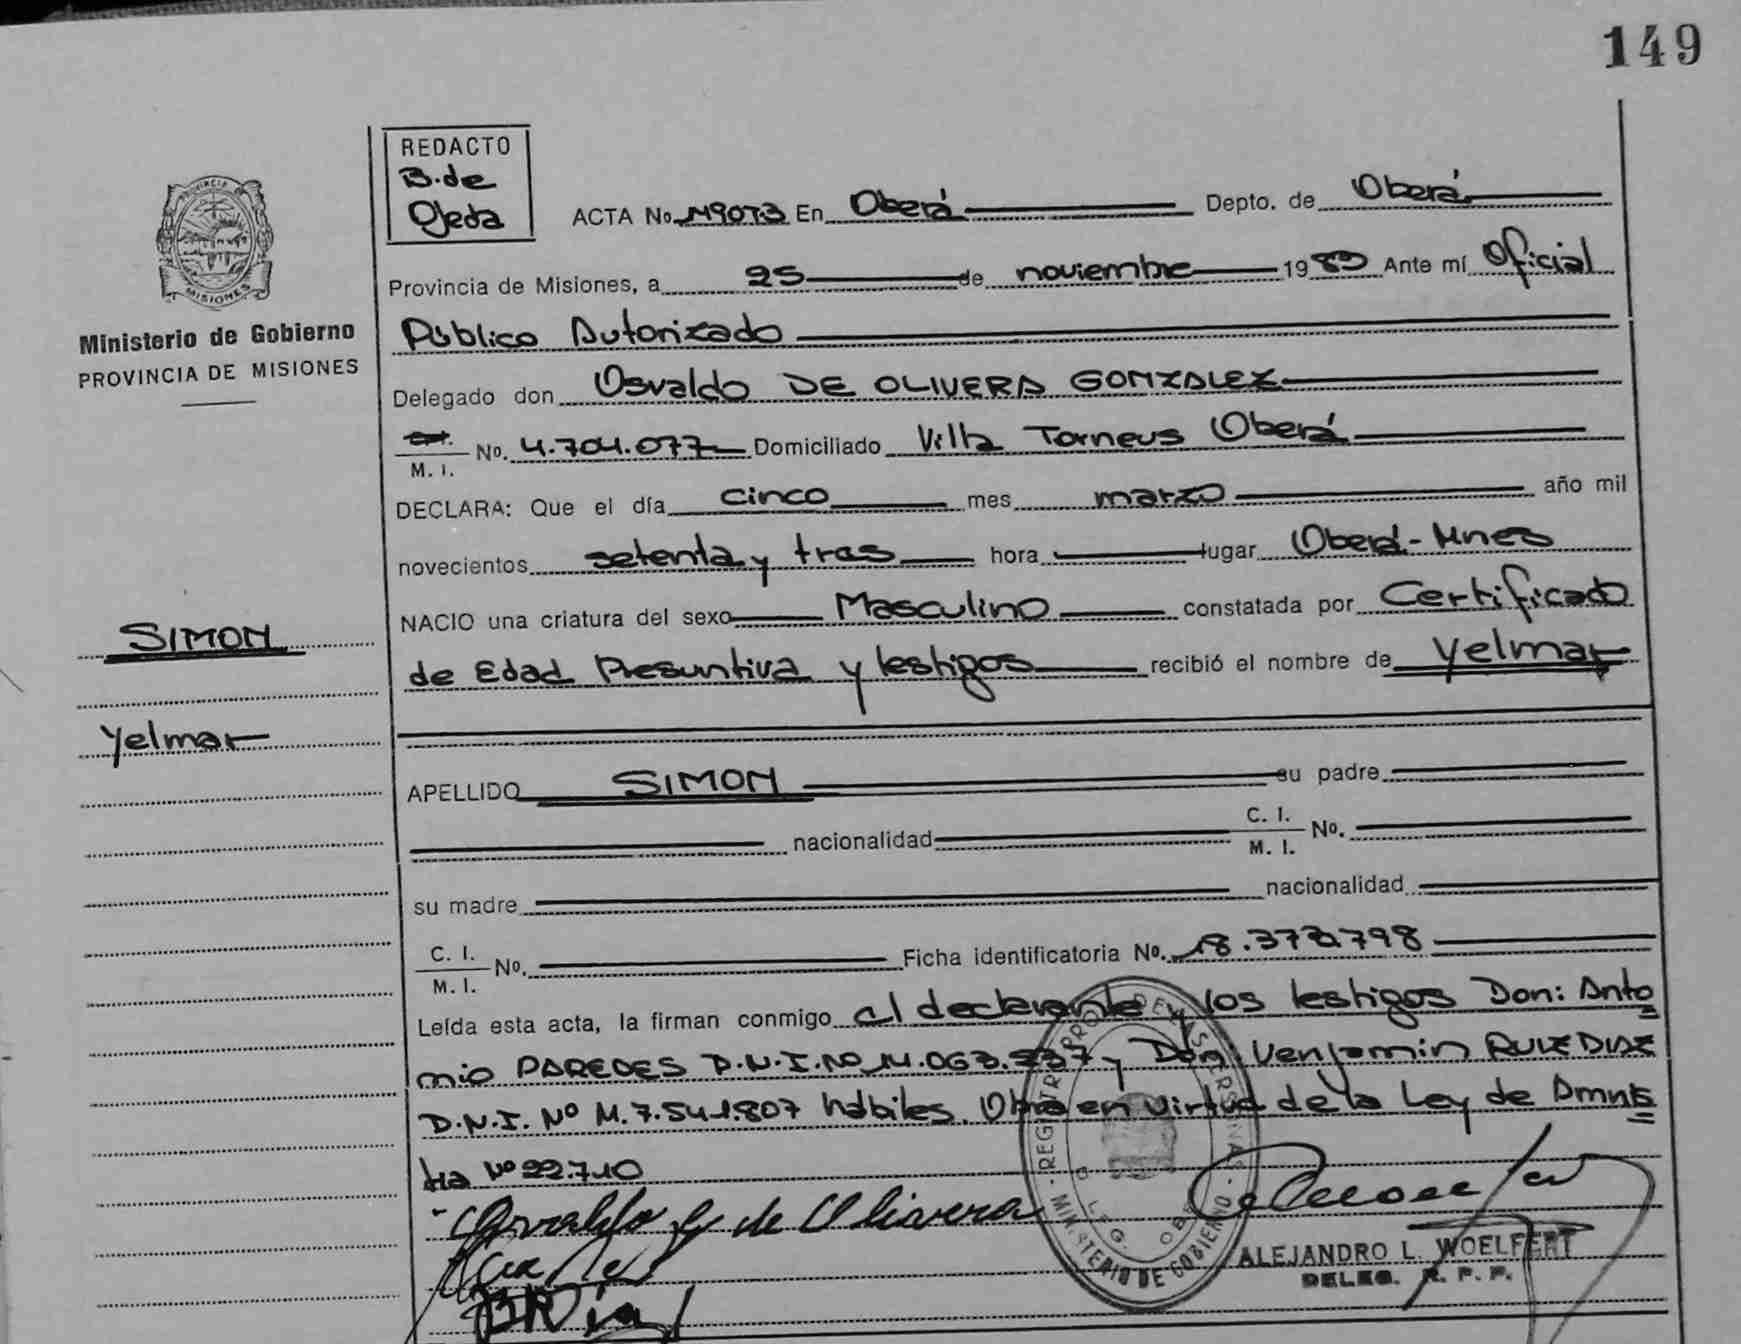 149
REDACTO
B. de
Ojeda
ACTA No. En Oberá Depto. de Oberá
Provincia de Misiones, a 25 de noviembre 19 Ante mí Oficial
Público Autorizado
Ministerio de Gobierno
PROVINCIA DE MISIONES
Delegado don Osvaldo DE OLIVERA GONZALEZ
M. I. No. 4.704.077 Domiciliado Villa Torneus Oberá
DECLARA: Que el día cinco mes marzo año mil
novecientos setenta y tras hora lugar Oberá-Mnes
NACIO una criatura del sexo Masculino constatada por Certificado
de Edad Presuntiva y testigos recibió el nombre de Yelmar
SIMON
Yelmar
APELLIDO SIMON su padre
nacionalidad C. I. M. I. No.
su madre nacionalidad
C. I. M. I. No. Ficha identificatoria No. 18.
Leída esta acta, la firman conmigo el declarante y los testigos Don: Anto
nio PAREDES D.N.I. Nº y Don: Venjamin RUIZ DIAZ
D.N.I. Nº M.7.541.807 hábiles. Obra en virtud de la Ley de Amnis
tia Nº 22.710
Osvaldo G de Olivera
ALEJANDRO L. WOELFERT
DELEG. R. P. P.
MINISTERIO DE GOBIERNO